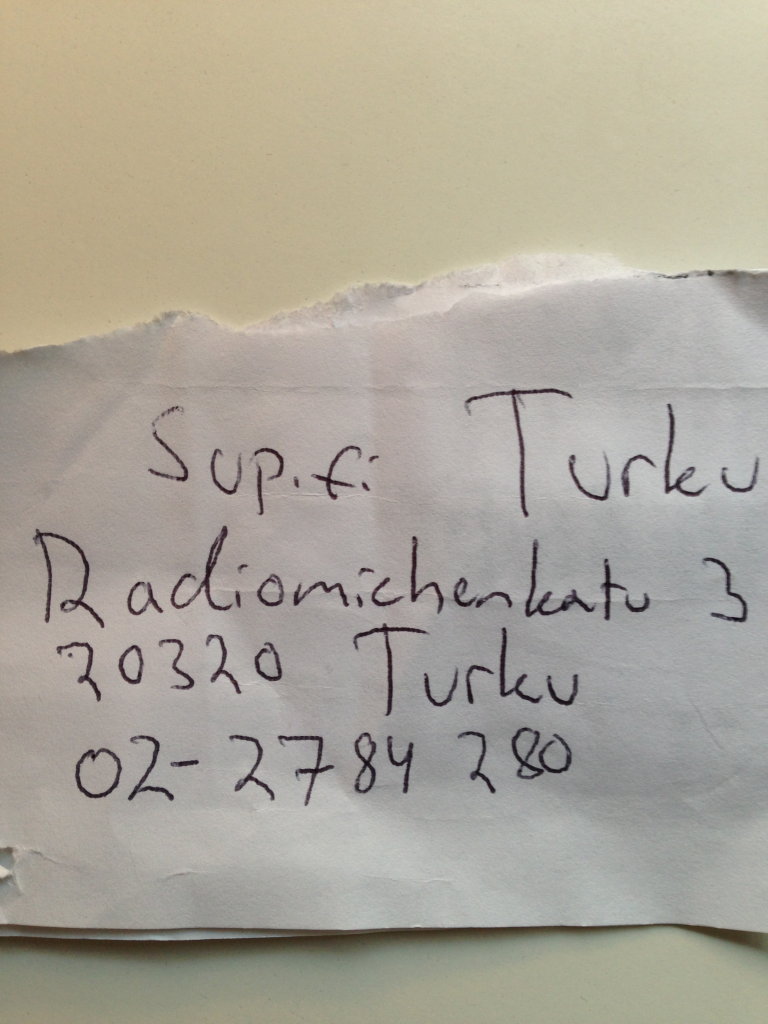 Sup.fi Turku
Radiomichenkatu 3
20320 Turku
02-2784 280